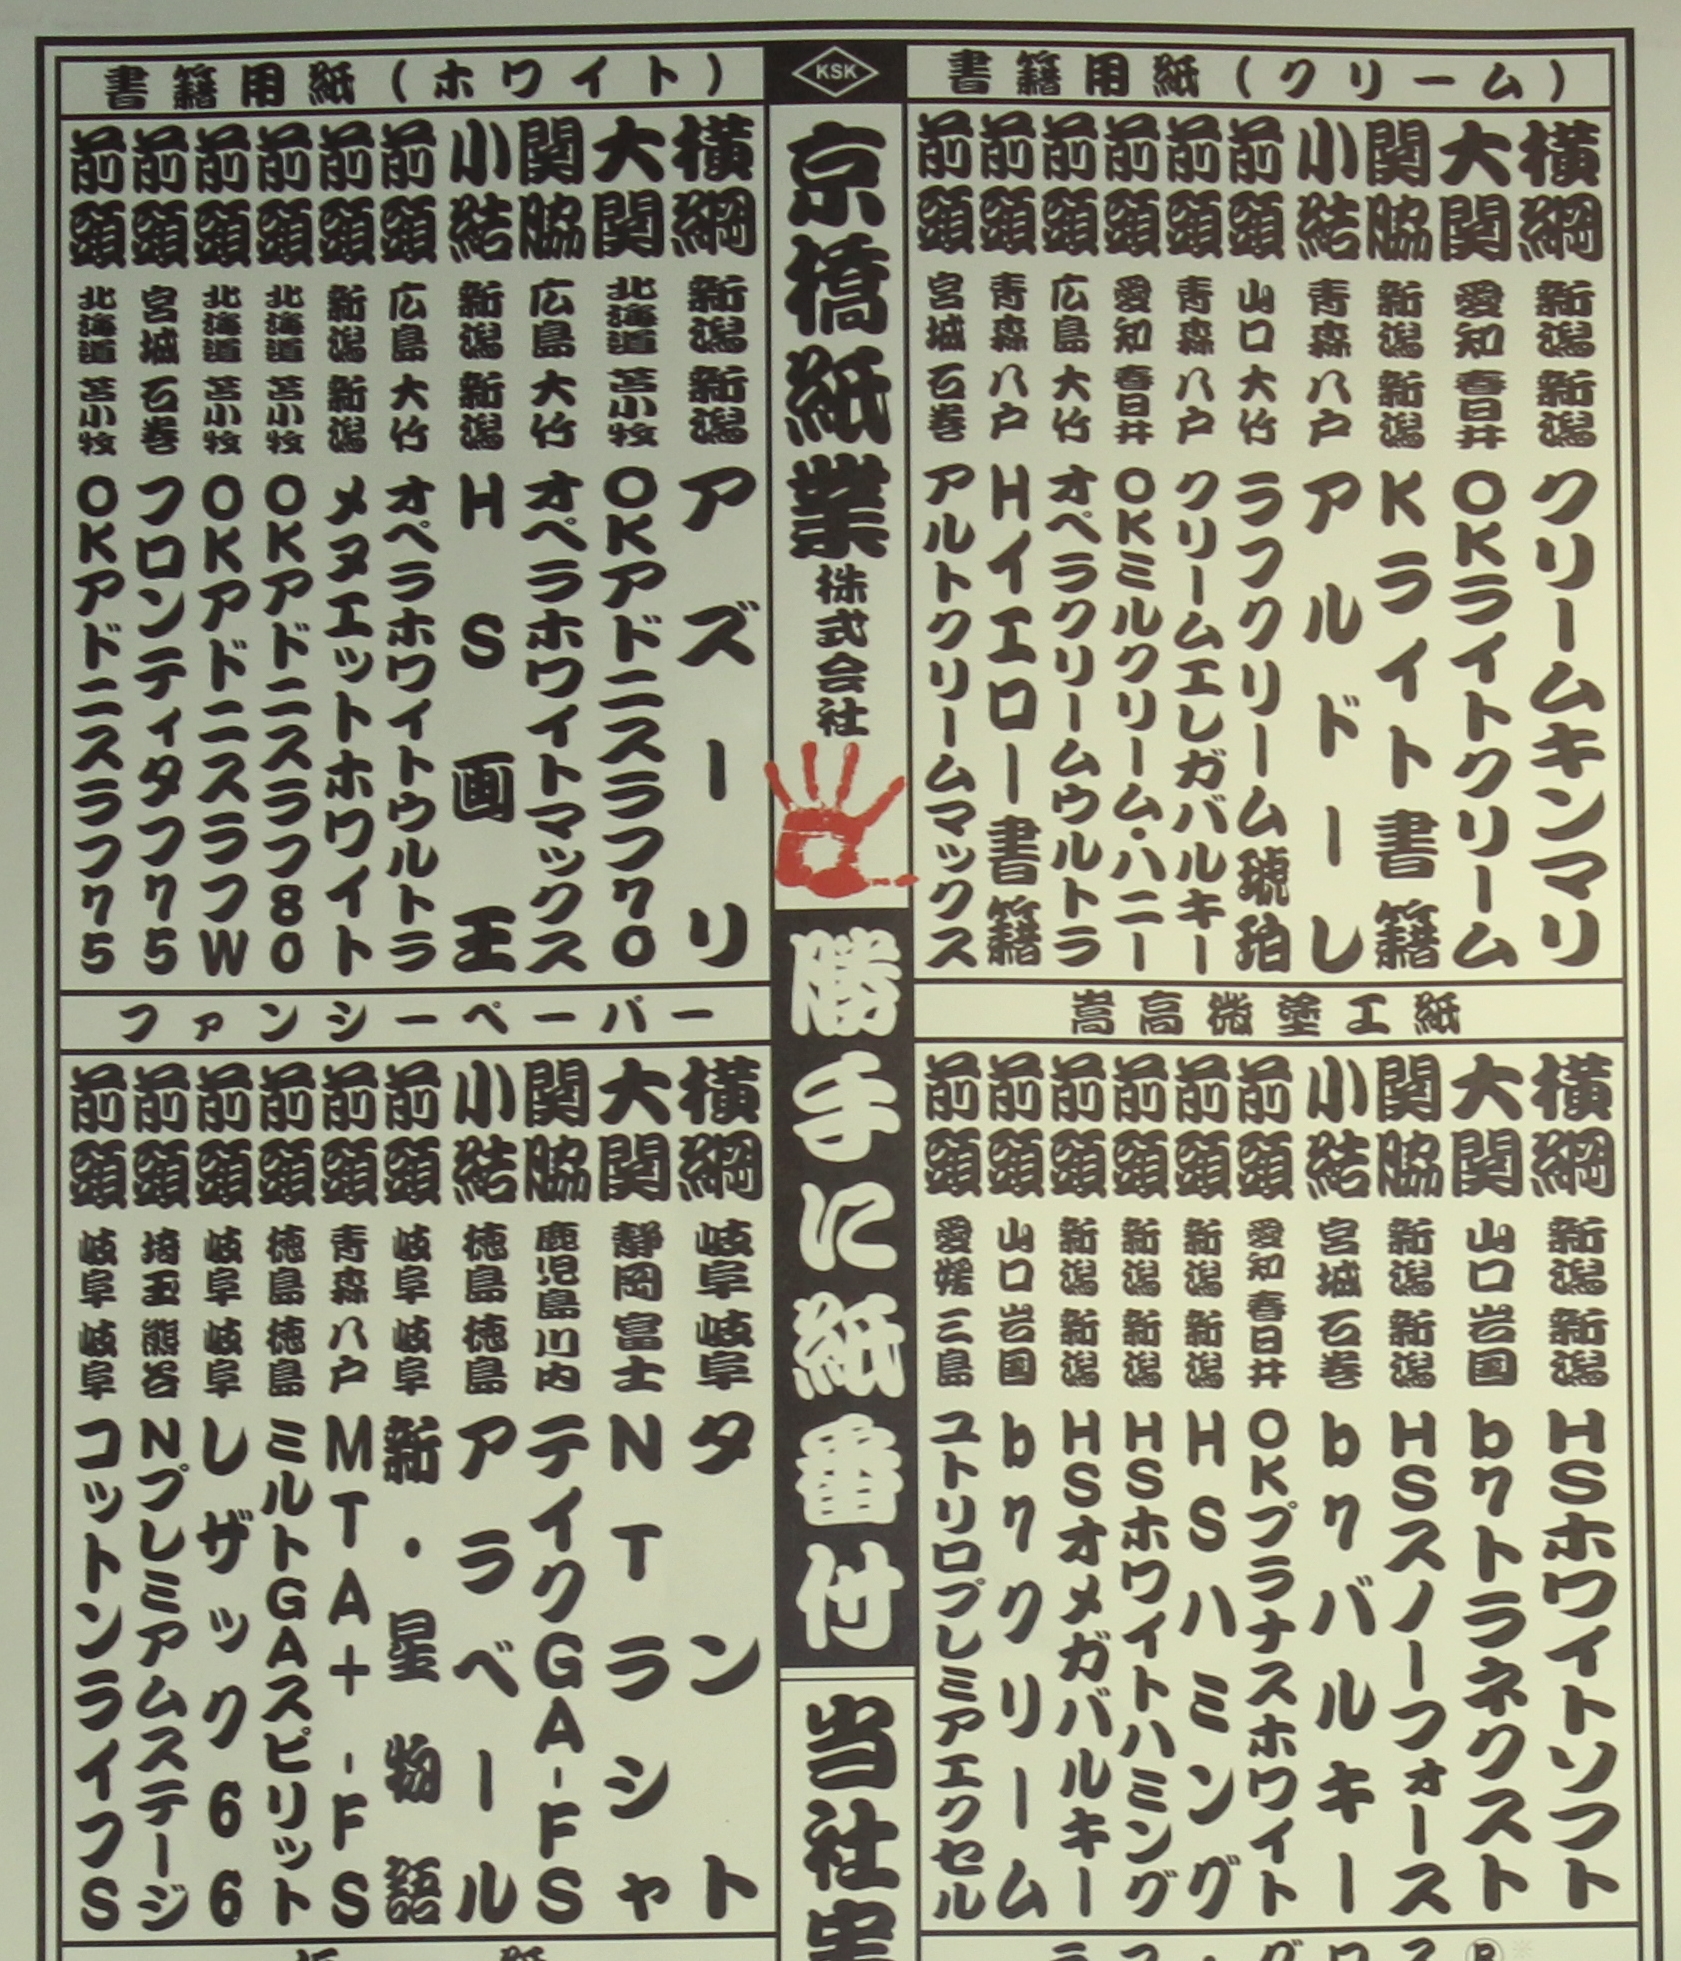 書籍用紙(クリーム)
横綱 新潟 新潟 クリームキンマリ
大関 愛知 春日井 OKライトクリーム
関脇 新潟 新潟 Kライト書籍
小結 青森 八戸 アルドーレ
前頭 山口 大竹 ラフクリーム琥珀
前頭 青森 八戸 クリームエレガバルキー
前頭 愛知 春日井 OKミルクリーム・ハニー
前頭 広島 大竹 オペラクリームウルトラ
前頭 青森 八戸 Hイエロー書籍
前頭 宮城 石巻 アルトクリームマックス
KSK
京橋紙業株式会社
勝手に紙番付
書籍用紙(ホワイト)
横綱 新潟 新潟 アズーリ
大関 北海道 苫小牧 OKアドニスラフ70
関脇 広島 大竹 オペラホワイトマックス
小結 新潟 新潟 HS画王
前頭 広島 大竹 オペラホワイトウルトラ
前頭 新潟 新潟 メヌエットホワイト
前頭 北海道 苫小牧 OKアドニスラフ80
前頭 北海道 苫小牧 OKアドニスラフW
前頭 宮城 石巻 フロンティタフ75
前頭 北海道 苫小牧 OKアドニスラフ75
嵩高微塗工紙
横綱 新潟 新潟 HSホワイトソフト
大関 山口 岩国 b7トラネクスト
関脇 新潟 新潟 HSスノーフォース
小結 宮城 石巻 b7バルキー
前頭 愛知 春日井 OKプラナスホワイト
前頭 新潟 新潟 HSハミング
前頭 新潟 新潟 HSホワイトハミング
前頭 新潟 新潟 HSオメガバルキー
前頭 山口 岩国 b7クリーム
前頭 愛媛 三島 ユトリロプレミアエクセル
ファンシーペーパー
横綱 岐阜 岐阜 タント
大関 静岡 富士 NTラシャ
関脇 鹿児島 川内 テイクGA-FS
小結 徳島 徳島 アラベール
前頭 岐阜 岐阜 新・星物語
前頭 青森 八戸 MTA+-FS
前頭 徳島 徳島 ミルトGAスピリット
前頭 岐阜 岐阜 レザック66
前頭 埼玉 熊谷 Nプレミアムステージ
前頭 岐阜 岐阜 コットンライフS
当社